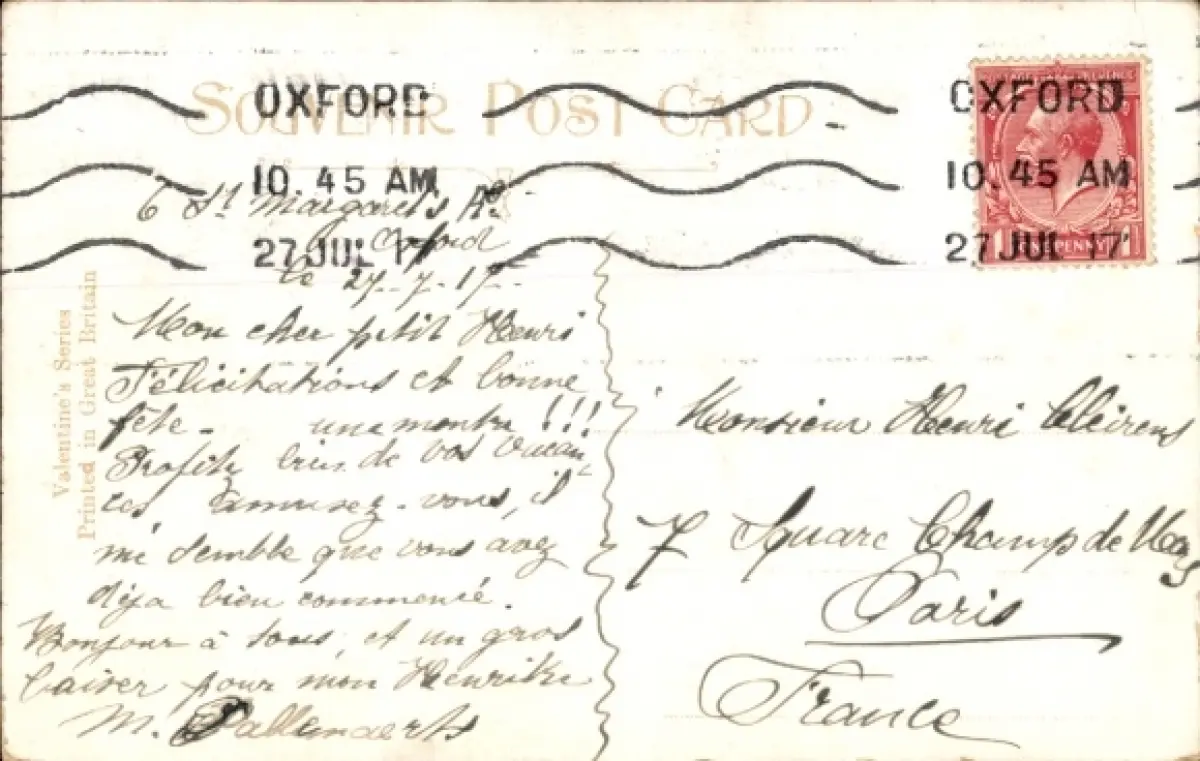 SOUVENIR POST CARD
OXFORD
10.45 AM
27 JUL 17
OXFORD
10.45 AM
27 JUL 17
POSTAGE REVENUE
ONE PENNY
6 St Margaret's Rd
Oxford
le 27-7-17-
Mon cher petit Henri
Félicitations et bonne
fête - une montre !!!
Profitez bien de vos vacan
ces amusez-vous, il
me semble que vous avez
déja bien commencé.
Bonjour à tous, et un gros
baiser pour mon Henrike
M.
Valentine's Series
Printed in Great Britain
Monsieur Henri Cleirens
7 Square Champ de Mars
Paris
France